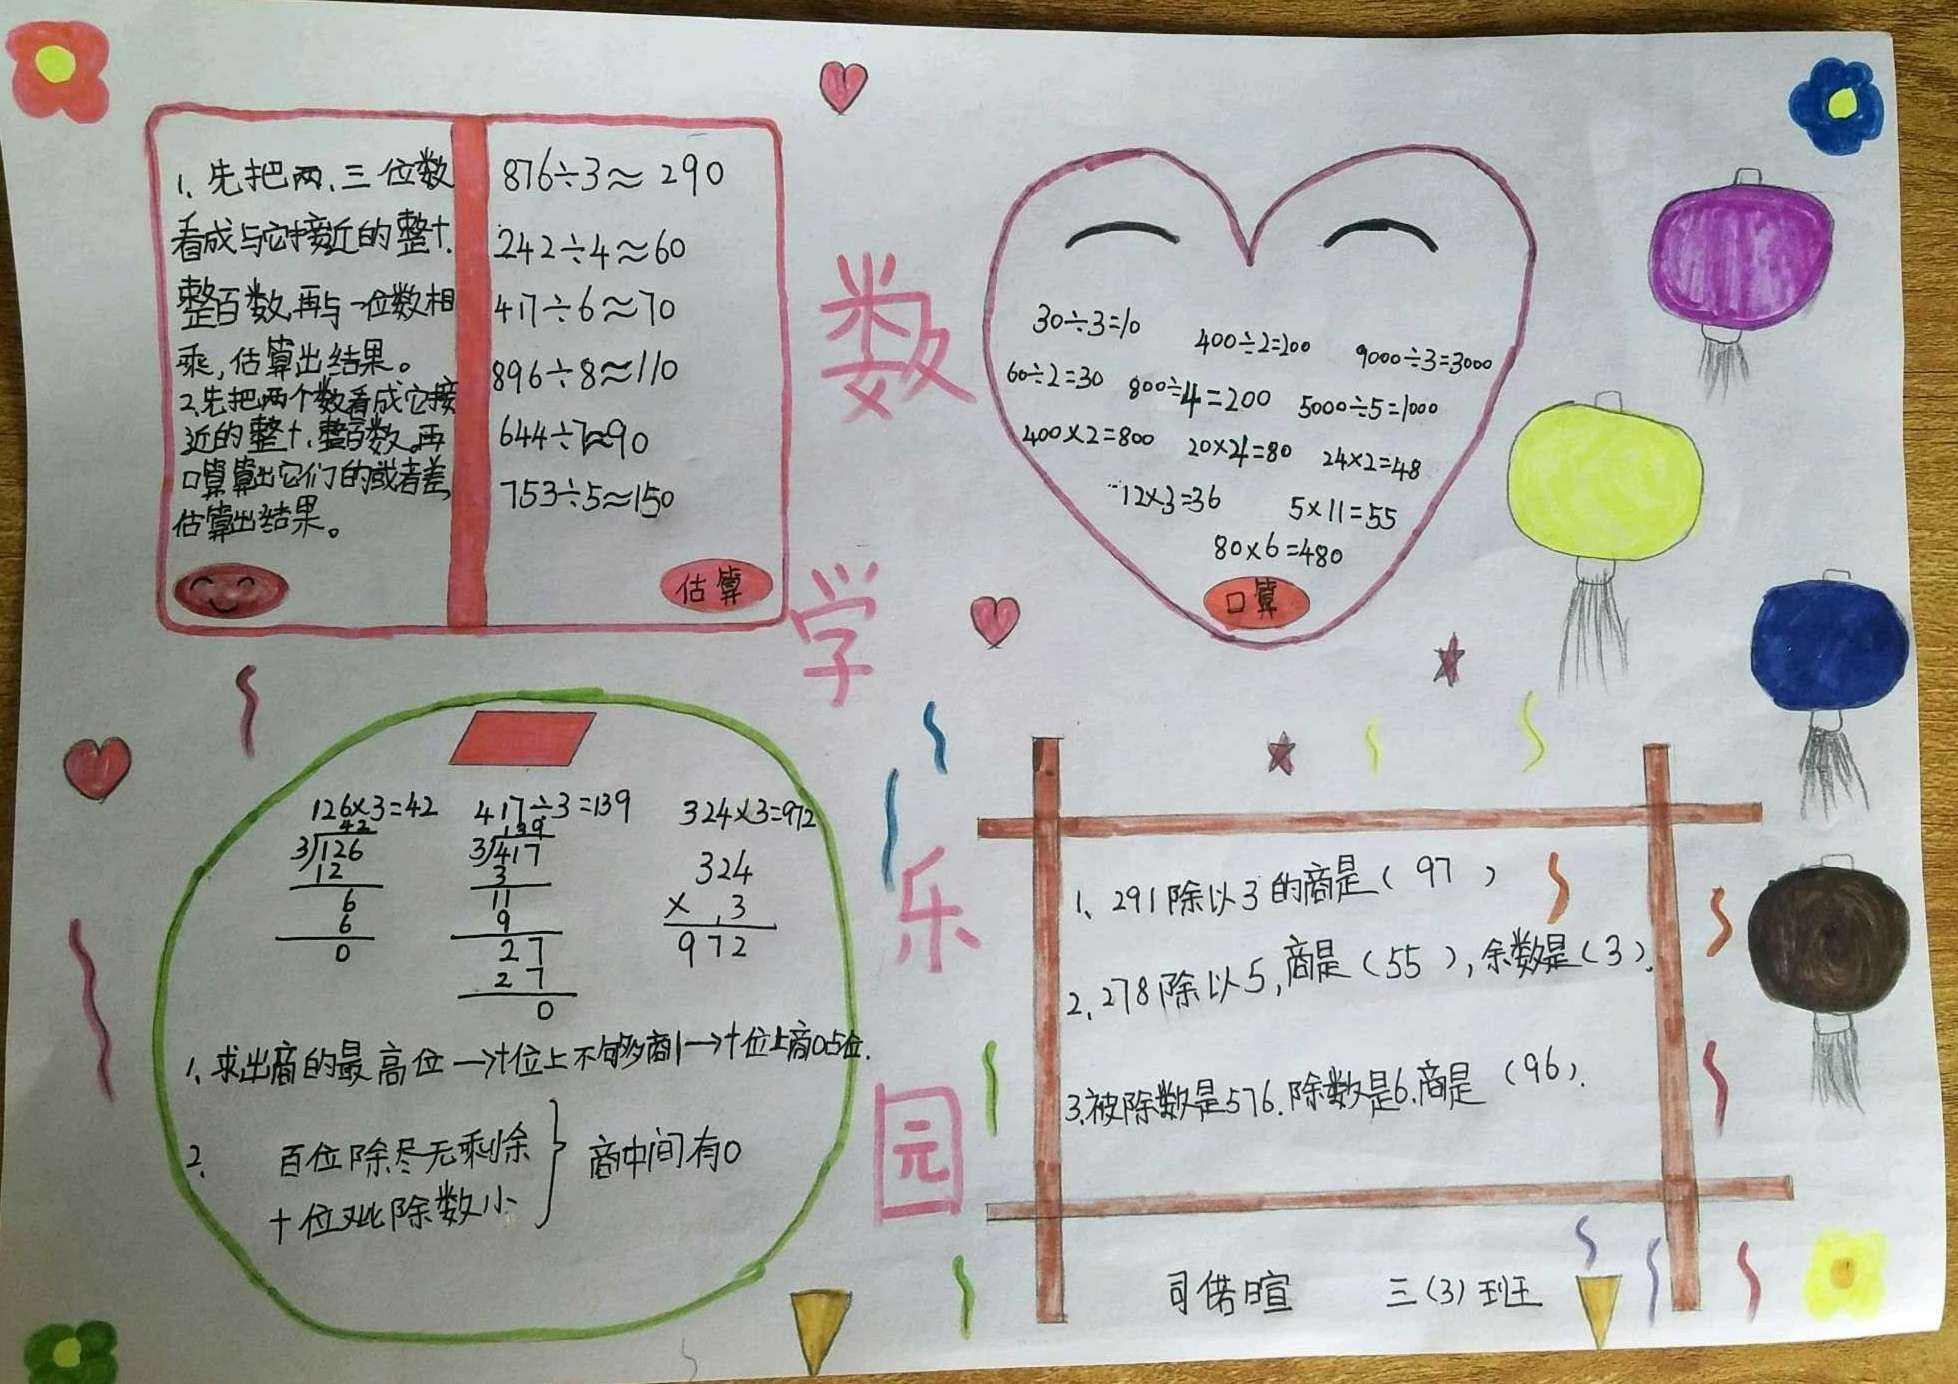 1、先把两、三位数
看成与它接近的整十、
整百数,再与一位数相
乘,估算出结果。
2、先把两个数看成它接
近的整十、整百数。再
口算算出它们的或者差,
估算出结果。
876÷3≈290
242÷4≈60
417÷6≈70
896÷8≈110
644÷7≈90
753÷5≈150
估算
数
学
乐
园
30÷3=10
400÷2=200
9000÷3=3000
60÷2=30
800÷4=200
5000÷5=1000
400×2=800
20×4=80
24×2=48
12×3=36
5×11=55
80×6=480
口算
126×3=42
42
3 126
12
6
6
0
417÷3=139
139
3 417
3
11
9
27
27
0
324×3=972
324
× 1 3
972
1、求出商的最高位→十位上不够商1→十位上商0占位.
2、 百位除尽无剩余
十位又比除数小
} 商中间有0
1、291除以3的商是(97)
2、278除以5,商是(55),余数是(3).
3.被除数是576.除数是6.商是(96).
司偌暄 三(3)班